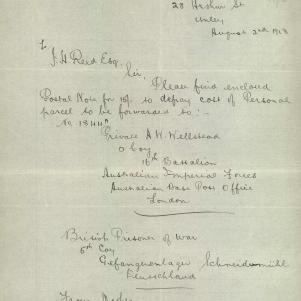 28 Haslun St
Unley
August 2nd 1918
To
J. H. Reed Esq.
Sir,
Please find enclosed
Postal Note for 10/- to defray cost of Personal
parcel to be forwarded to:-
Private A. W. Wellstead
D Coy
16th Battalion
Australian Imperial Forces
Australian Base Post Office
London
British Prisoner of War
5th Coy
Gefangenenlager Schneidemühl
Deutschland
From